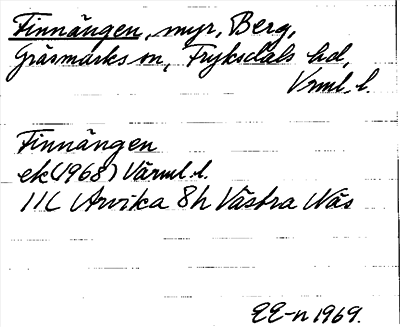 Finnängen, myr, Berg,
Gräsmarks sn, Fryksdals hd,
Vrml. l.
Finnängen
ek (1968) Värml. l.
11C Arvika 8h Västra Näs
EE-n 1969.